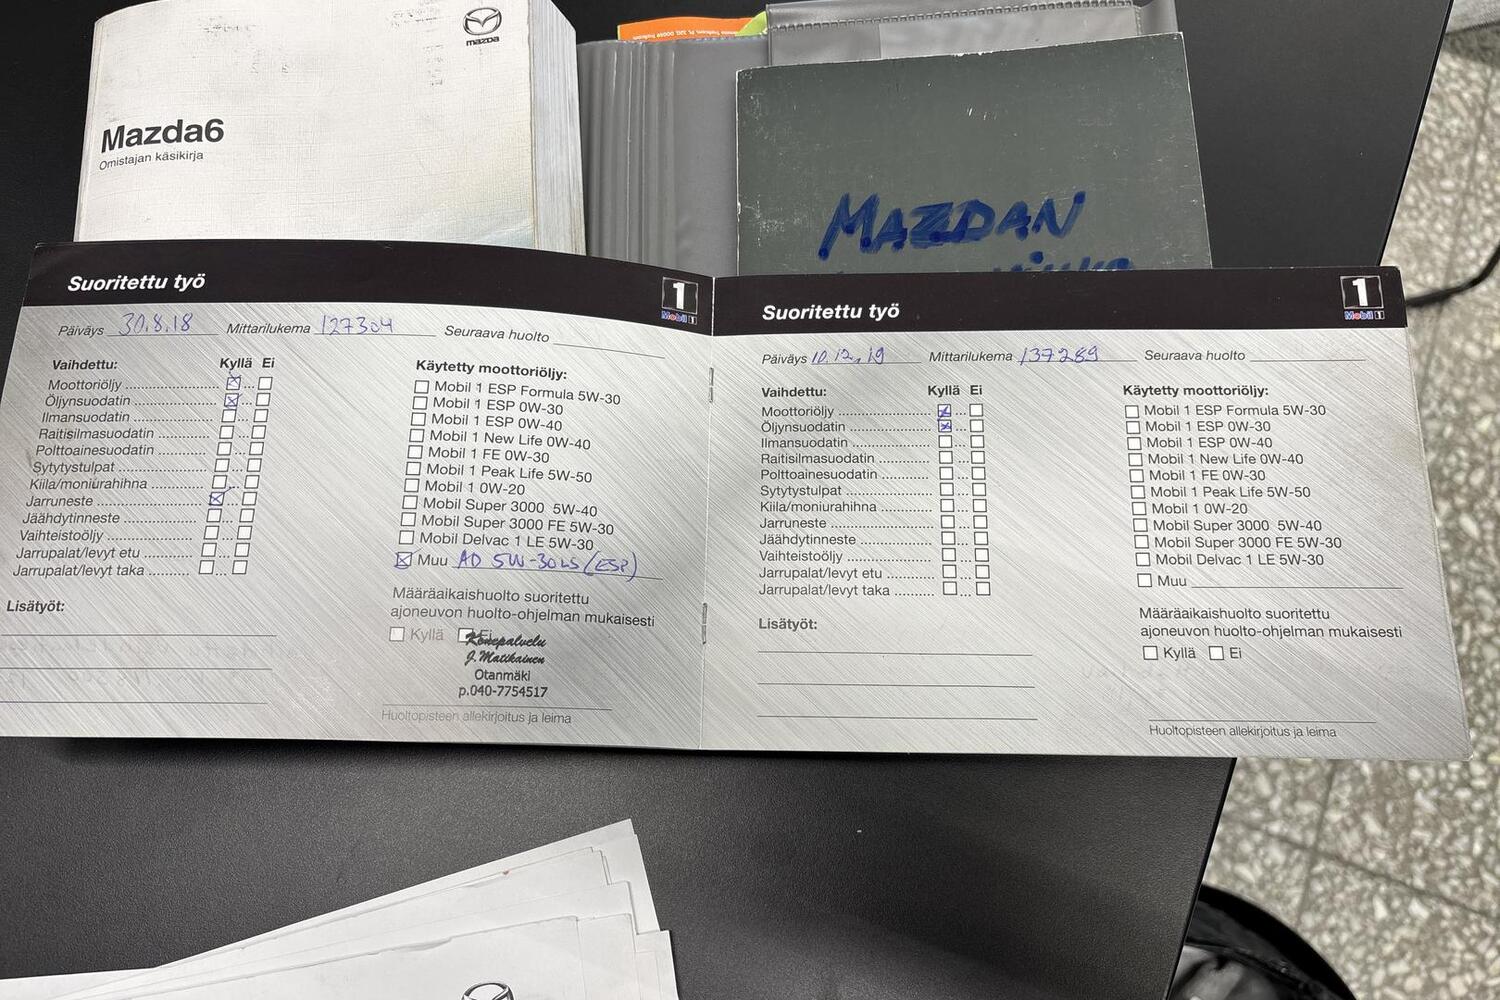 mazda
Mazda6
Omistajan käsikirja
MAZDAN
Suoritettu työ
1
Mobil 1
Päiväys 30.8.18 Mittarilukema 127304 Seuraava huolto
Vaihdettu: Kyllä Ei
Moottoriöljy
Öljynsuodatin
Ilmansuodatin
Raitisilmasuodatin
Polttoainesuodatin
Sytytystulpat
Kiila/moniurahihna
Jarruneste
Jäähdytinneste
Vaihteistoöljy
Jarrupalat/levyt etu
Jarrupalat/levyt taka
Lisätyöt:
Käytetty moottoriöljy:
Mobil 1 ESP Formula 5W-30
Mobil 1 ESP 0W-30
Mobil 1 ESP 0W-40
Mobil 1 New Life 0W-40
Mobil 1 FE 0W-30
Mobil 1 Peak Life 5W-50
Mobil 1 0W-20
Mobil Super 3000 5W-40
Mobil Super 3000 FE 5W-30
Mobil Delvac 1 LE 5W-30
Muu AD 5W-30 LS (ESP)
Määräaikaishuolto suoritettu
ajoneuvon huolto-ohjelman mukaisesti
Kyllä Ei
Konepalvelu
J. Matikainen
Otanmäki
p.040-7754517
Huoltopisteen allekirjoitus ja leima
Suoritettu työ
1
Mobil 1
Päiväys 10.12.19 Mittarilukema 137289 Seuraava huolto
Vaihdettu: Kyllä Ei
Moottoriöljy
Öljynsuodatin
Ilmansuodatin
Raitisilmasuodatin
Polttoainesuodatin
Sytytystulpat
Kiila/moniurahihna
Jarruneste
Jäähdytinneste
Vaihteistoöljy
Jarrupalat/levyt etu
Jarrupalat/levyt taka
Lisätyöt:
Käytetty moottoriöljy:
Mobil 1 ESP Formula 5W-30
Mobil 1 ESP 0W-30
Mobil 1 ESP 0W-40
Mobil 1 New Life 0W-40
Mobil 1 FE 0W-30
Mobil 1 Peak Life 5W-50
Mobil 1 0W-20
Mobil Super 3000 5W-40
Mobil Super 3000 FE 5W-30
Mobil Delvac 1 LE 5W-30
Muu
Määräaikaishuolto suoritettu
ajoneuvon huolto-ohjelman mukaisesti
Kyllä Ei
Huoltopisteen allekirjoitus ja leima